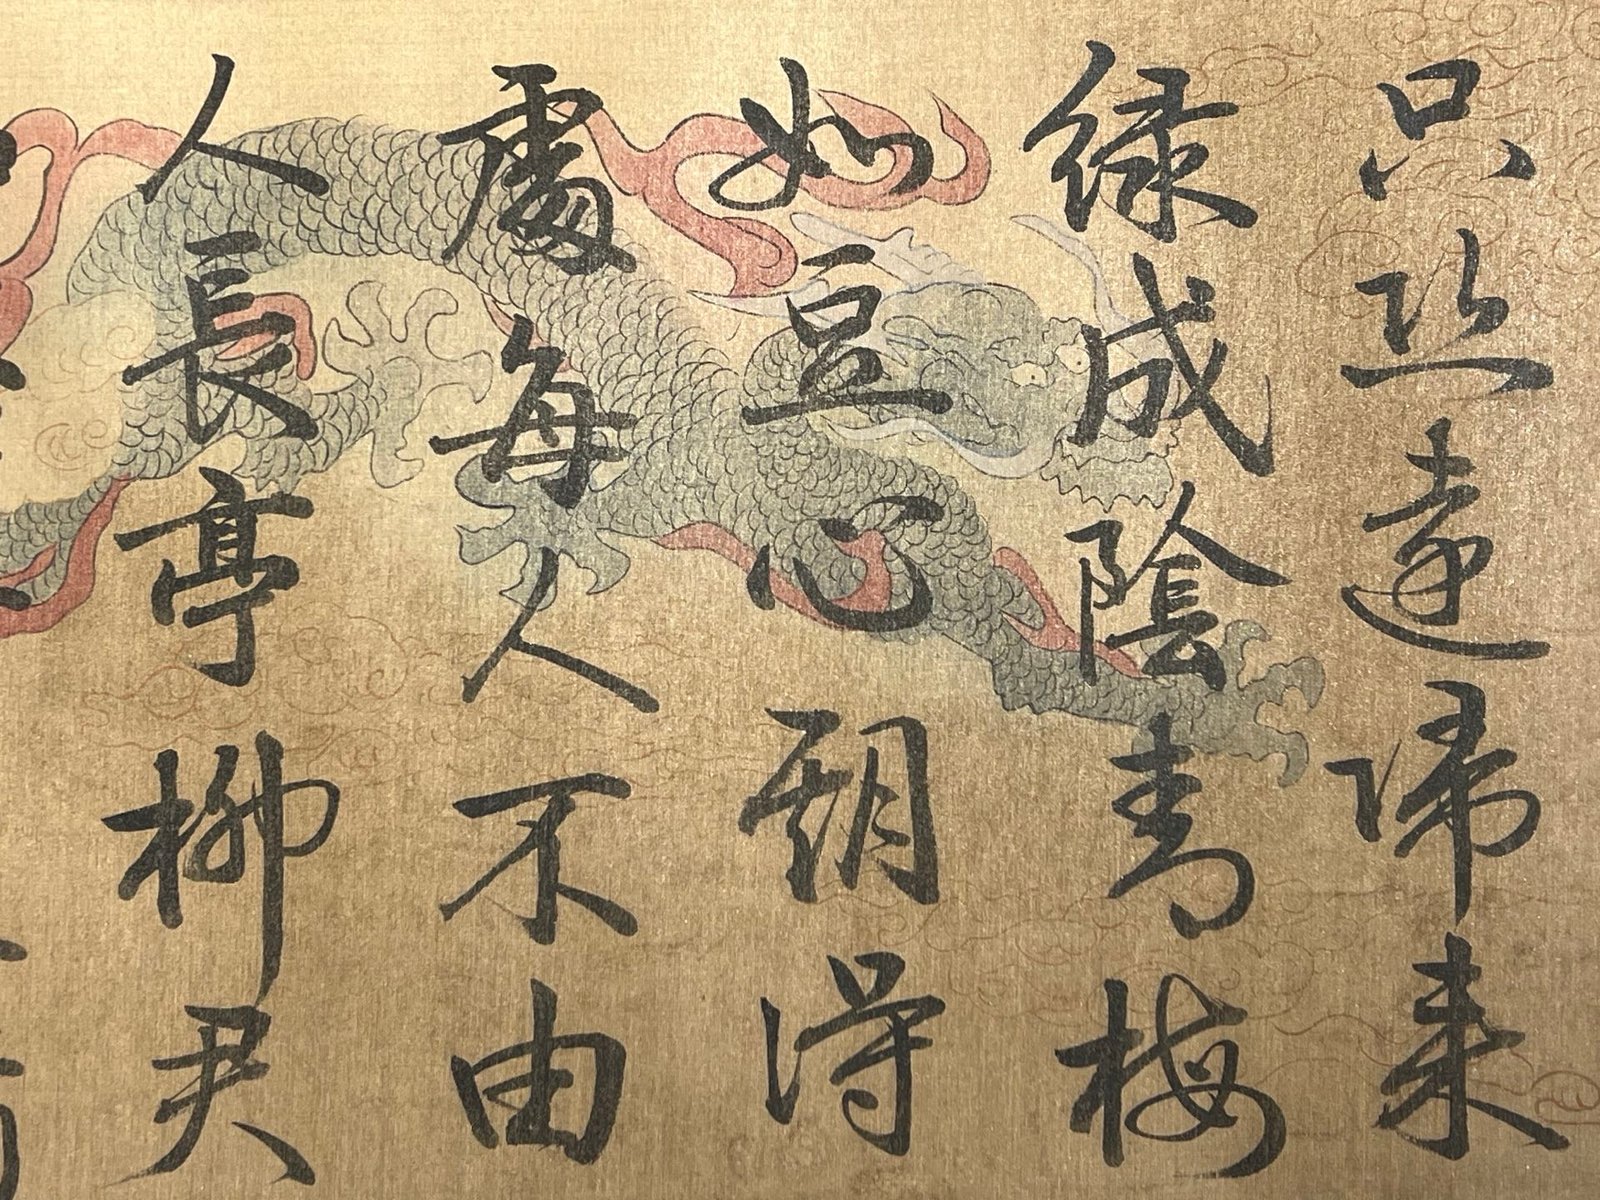 只恐遠歸来
绿成陰青梅
如豆心期得
處每人不由
人長亭柳君